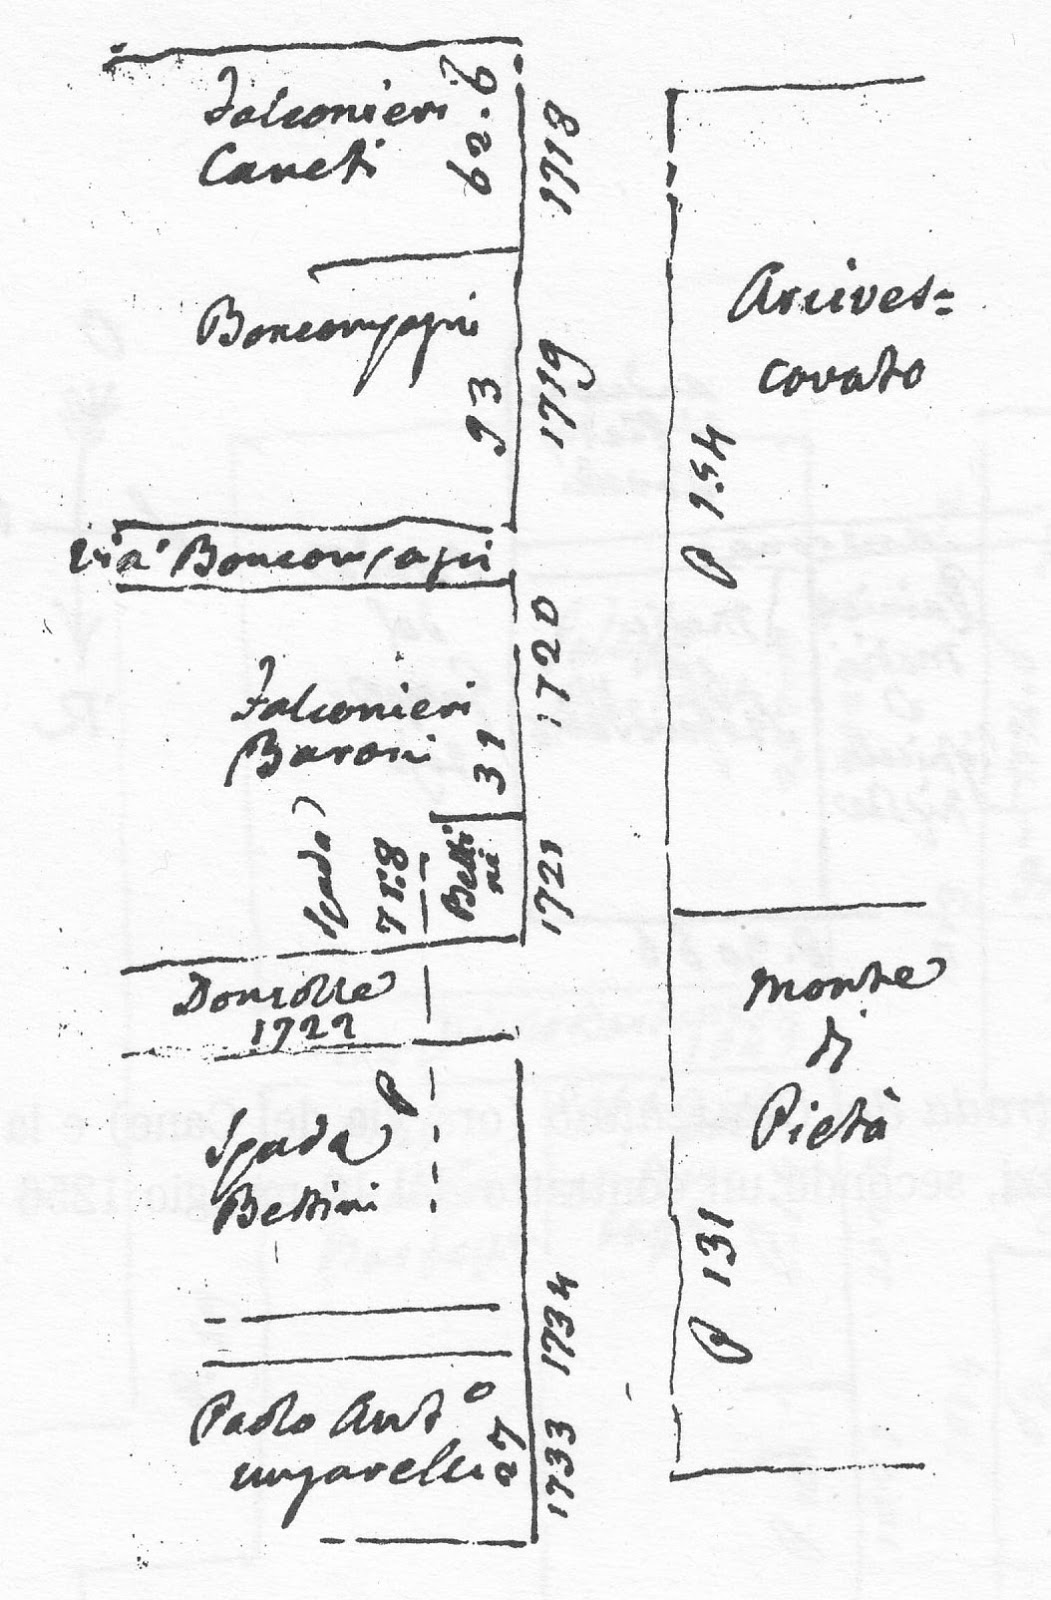 Falconieri
Caneti
62.6
1718
Boncompagni
93
1719
via Boncompagni
Falconieri
Baroni
31
1720
Spada
7 1.8
Belli
ni
1721
Donzelle
1722
Spada P
Bettini
1734
Paolo Anto
ungarelli 27
1733
Arcives=
covato
P 154
Monte
di
Pietà
P 131